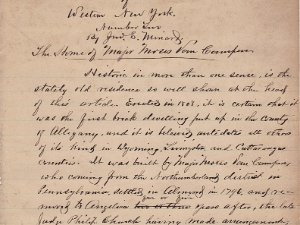 of
Western New York.
Number Four
By Jno. S. Minard
The Home of Major Moses Van Campen
Historic in more than one sense, is the
stately old residence so well shown at the head
of this article. Erected in 1808, it is certain that it
was the first brick dwelling put up in the County
of Allegany, and it is believed antedates all others
of its kind in Wyoming, Livingston and Cattaraugus
counties. It was built by Major Moses Van Campen
who coming from the Northumberland district in
Pennsylvania, settled in Almond in 1796, and re-
moved to Angelica two or three years after, the late
Judge Philip Church having made arrangements